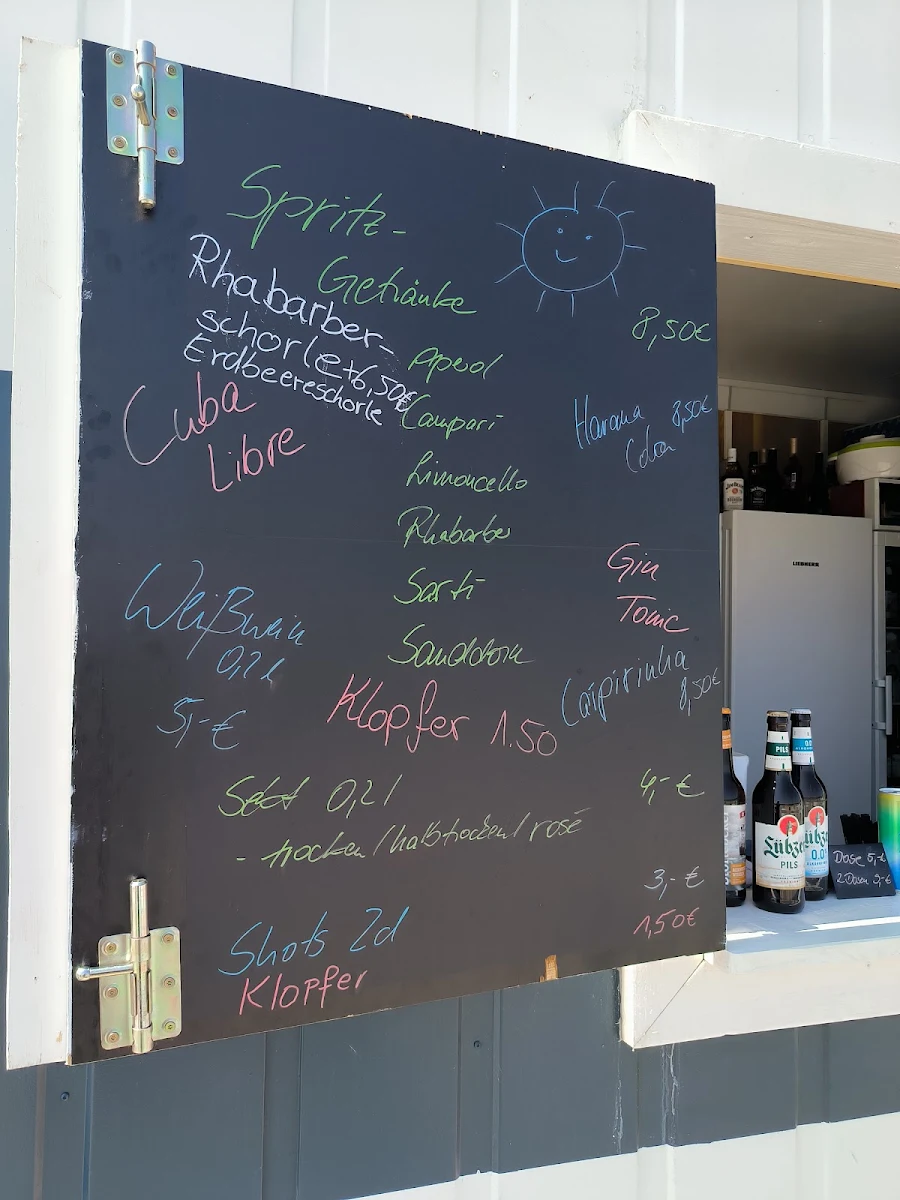 Spritz-
Getränke
8,50€
Rhabarber-
schorle + 6,50€
Erdbeereschorle
Aperol
Campari
Limoncello
Rhabarber
Sarti
Sanddorn
Cuba
Libre
Havana 8,50€
Cola
Gin
Tonic
Weißwein
0,2l
5,-€
Caipirinha
8,50€
Klopfer 1.50
Sekt 0,2l 4,-€
- trocken/halbtrocken/rosé
Shots 2cl 3,-€
Klopfer 1,50€
LIEBHERR
PILS
0,0
Lübzer
PILS
Lübz
0,0
Dose 5,-€
2 Dosen 9,-€